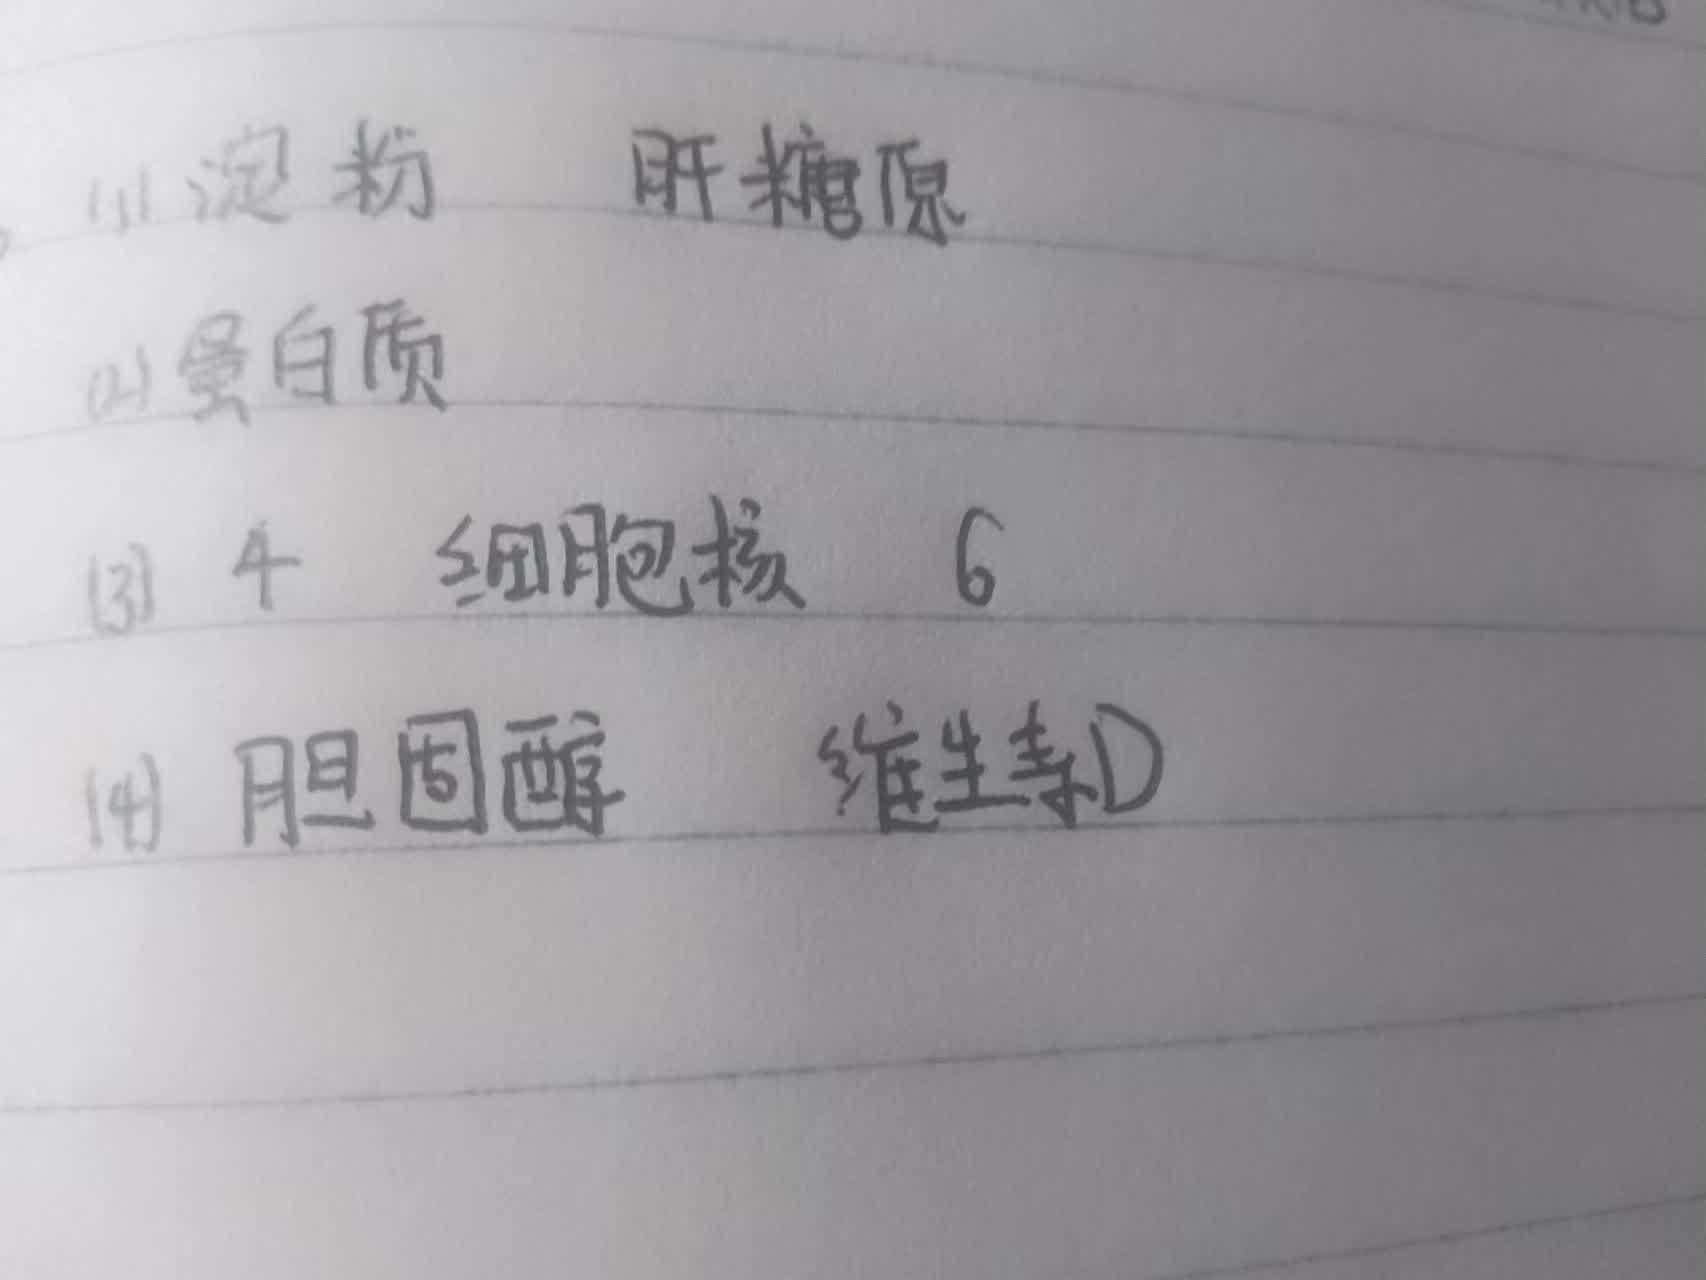 (1) 淀粉 肝糖原
(2) 蛋白质
(3) 4 细胞核 6
(4) 胆固醇 维生素D